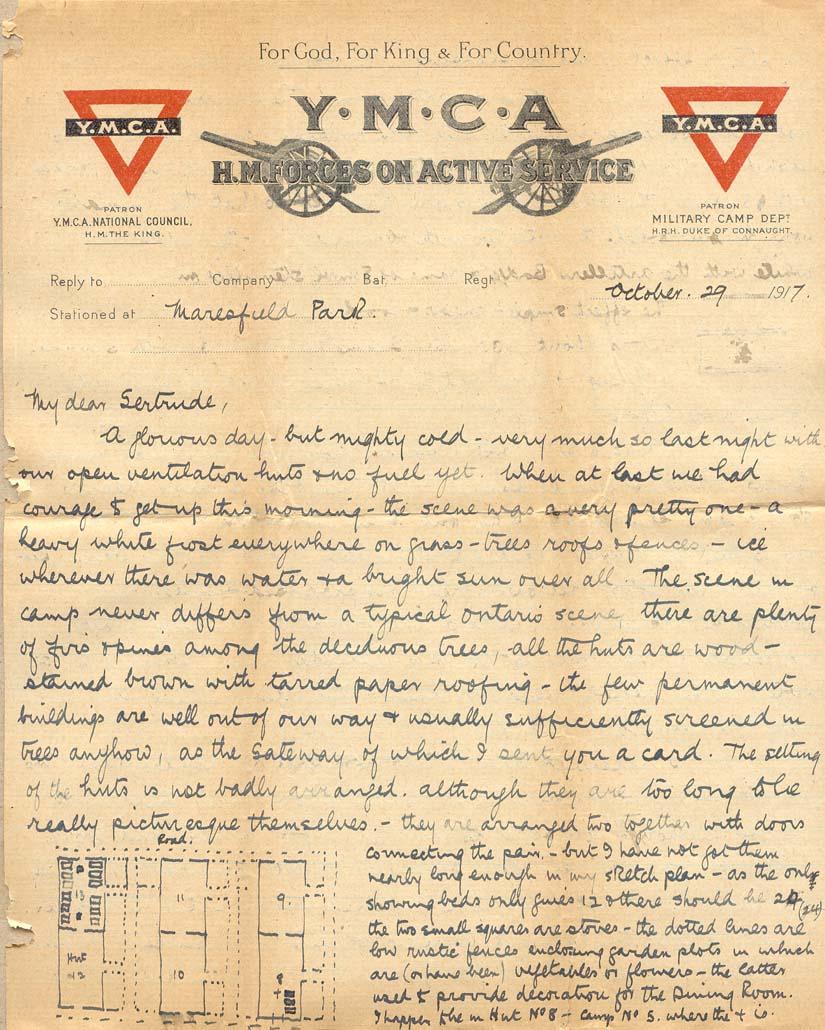 For God, For King & For Country.
Y·M·C·A
H.M. FORCES ON ACTIVE SERVICE
Y.M.C.A.
PATRON
Y.M.C.A. NATIONAL COUNCIL,
H.M. THE KING.
Y.M.C.A.
PATRON
MILITARY CAMP DEPT
H.R.H. DUKE OF CONNAUGHT.
Reply to Company Bat. Regt. October. 29 1917.
Stationed at Maresfield Park.
My dear Gertrude,
A glorious day - but mighty cold - very much so last night with
our open ventilation huts & no fuel yet. When at last we had
courage to get up this morning - the scene was a very pretty one - a
heavy white frost everywhere on grass - trees roofs & fences - ice
wherever there was water & a bright sun over all. The scene in
camp never differs from a typical Ontario scene, there are plenty
of firs & pines among the deciduous trees, all the huts are wood -
stained brown with tarred paper roofing - the few permanent
buildings are well out of our way & usually sufficiently screened in
trees anyhow, as the Gateway of which I sent you a card. The setting
of the huts is not badly arranged. although they are too long to be
really picturesque themselves. - they are arranged two together with doors
connecting the pair, - but I have not got them
nearly long enough in my sketch plan - as the only
showing beds only gives 12 & there should be 24 (24)
the two small squares are stoves - the dotted lines are
low rustic fences enclosing garden plots in which
are (or have been) vegetables or flowers - the latter
used to provide decoration for the Dining Room.
I happen to be in Hut No 8 - Camp No 5. where the + is.
Road.
13
Hut
12
11
10
9.
8
+